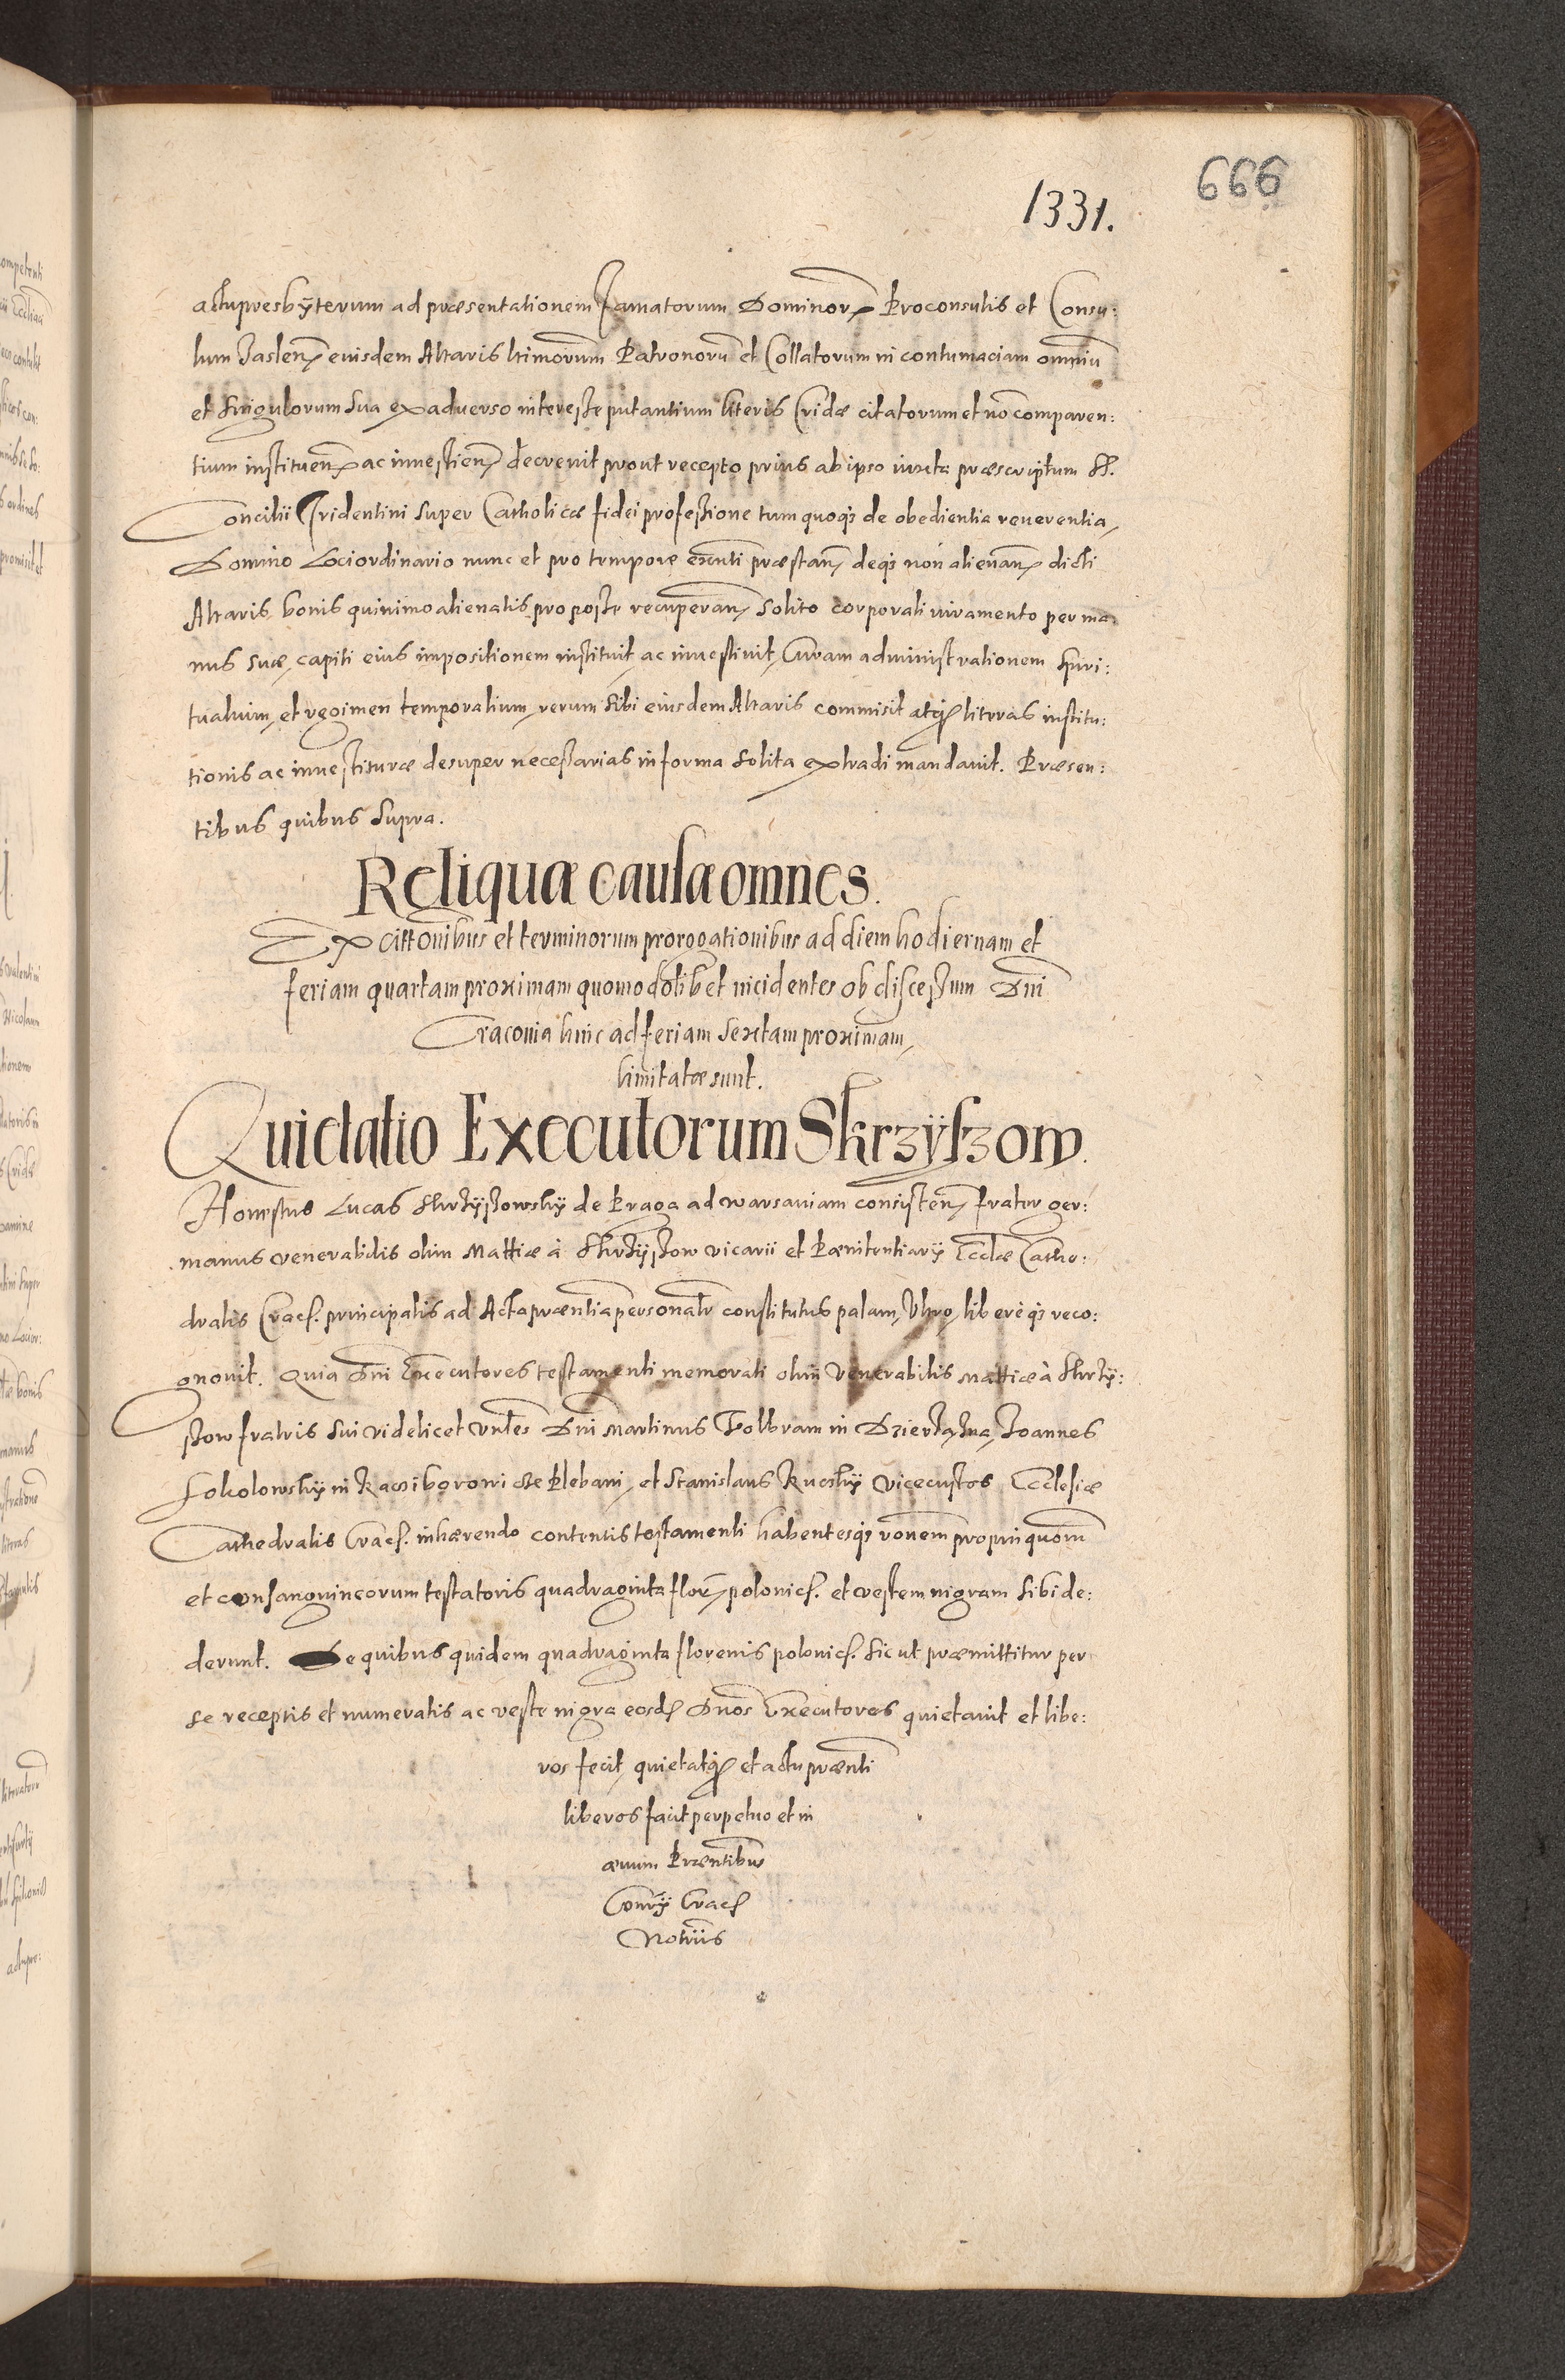 666
1331.
actu presbÿterum ad præsentationem Famatorum Dominor Proconsulis et Consu:
lum Jaslen eiusdem Altaris ltimorum Patronorũ et Collatorum in contumaciam omniũ
et singulorum sua ex adverso interesse putantium literis Cridæ citatorum et nõ comparen:
tium instituen ac investien decrevit prout recepto prius ab ipso iuxta præscriptum S.
Concilii Tridentini super Catholicæ fidei professione tum quoqз de obedientia reverentia,
Domino Lociordinario nunc et pro tempore exnti præstan deqз non alienan dicti
Altaris bonis quinimo alienatis pro posse recuperan solito corporali iuramento per ma
nus suæ, capiti eius impositionem instituit, ac investivit, Curam administrationem spiri:
tualium, et regimen temporalium, rerum sibi eiusdem Altaris commisit atq literas institu:
tionis ac investituræ desuper necessarias in forma solita extradi mandavit. Præsen:
tibus quibus supra.
Reliquæ causæ omnes.
Ex cittonibus et terminorum prorogationibus ad diem hodiernam et
feriam quartam proximam quomodolibet incidentes ob discessum Dni
Cracovia hinc ad feriam sextam proximam,
limitatæ sunt.
Quietatio Executorum Skrzÿszow.
Honestus Lucas Skrzÿszowskÿ de Praga ad Warsaviam consisten, frater ger:
manus venerabilis olim Mattiæ à Skrzÿszow vicarii et Pænitentiarÿ Ecclæ Cathe:
dralis Cracs. principalis ad Acta præntia personalr constitutus palam, Vltro, liberèqз reco:
gnovit. Quia Dni Executores testamenti memorati olim Venerabilis Mattiæ à Skrzÿ:
szow fratris sui videlicet Vnles Dni Martinus Folbram in Dzierzązna, Joannes
Sokolowskÿ in Racziborowicze Plebani, et Stanislaus Kucskÿ Vicecustos Ecclesiæ
Cathedralis Cracs. inhærendo contentis testamenti habentesqз ronem propinquorũ
et consanguineorum testatoris quadraginta flor polonics. et vestem nigram sibi de:
derunt. De quibus quidem quadraginta florenis polonics. sicut præmittitur per
se receptis et numeratis ac veste nigra eosd Dnos Executores quietavit et libe:
ros fecit, quietatq et actu prænti
liberos facit perpetuo et in
ævum Præntibus
Cons̃rÿ Cracs
Notriis